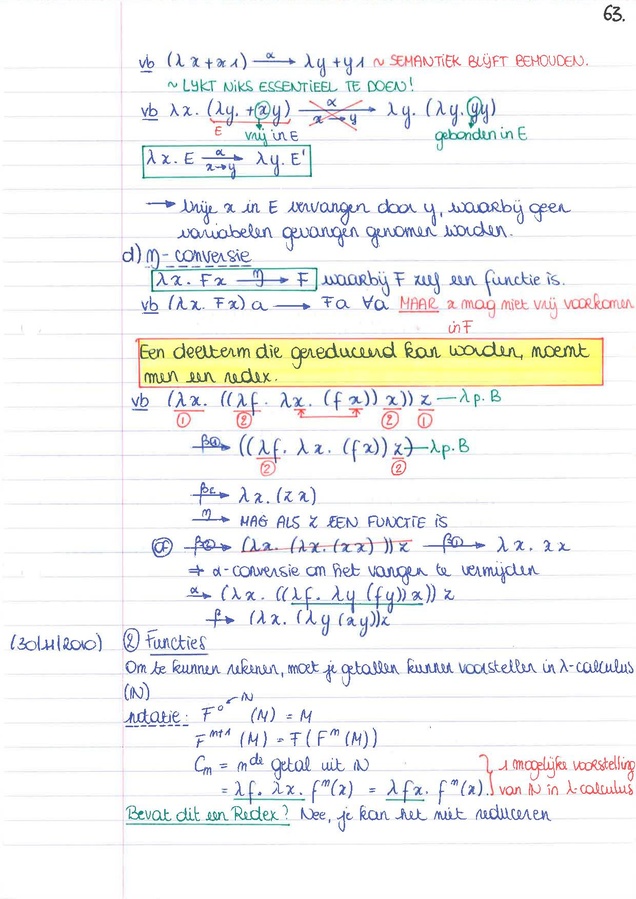 63.
vb (λx + x1) —α→ λy + y1 ~ SEMANTIEK BLIJFT BEHOUDEN.
~ LIJKT NIKS ESSENTIEEL TE DOEN!
vb λx. (λy. +xy) —α→ x→y λy. (λy. yy)
E vrij in E gebonden in E
λx. E —α→ x→y λy. E'
→ Vrije x in E vervangen door y, waarbij geen
variabelen gevangen genomen worden.
d) η-conversie
λx. Fx —η→ F waarbij F zelf een functie is.
vb (λx. Fx) a → Fa ∀a MAAR x mag niet vrij voorkomen
in F
Een deelterm die gereduceerd kan worden, noemt
men een redex.
vb (λx. ((λf. λx. (f x)) x)) z — λp. B
① ② ② ①
—β①→ ((λf. λx. (fx)) z) — λp. B
② ②
→ λx. (zx)
—η→ MAG ALS Z EEN FUNCTIE IS
OF —β②→ (λx. (λx. (xx) )) z —β①→ λx. xx
⇒ α-conversie om het vangen te vermijden
—α→ (λx. ((λf. λy (fy)) x)) z
—β→ (λx. (λy (xy))z
(30/11/2010) ② Functies
Om te kunnen rekenen, moet je getallen kunnen voorstellen in λ-calculus
(ℕ)
notatie: F⁰ (M) = M
ℕ
Fᵐ⁺¹ (M) = F (Fᵐ(M))
Cₘ = mᵈᵉ getal uit ℕ } 1 mogelijke voorstelling
= λf. λx. fᵐ(x) = λfx. fᵐ(x). van ℕ in λ-calculus
Bevat dit een Redex? Nee, je kan het niet reduceren